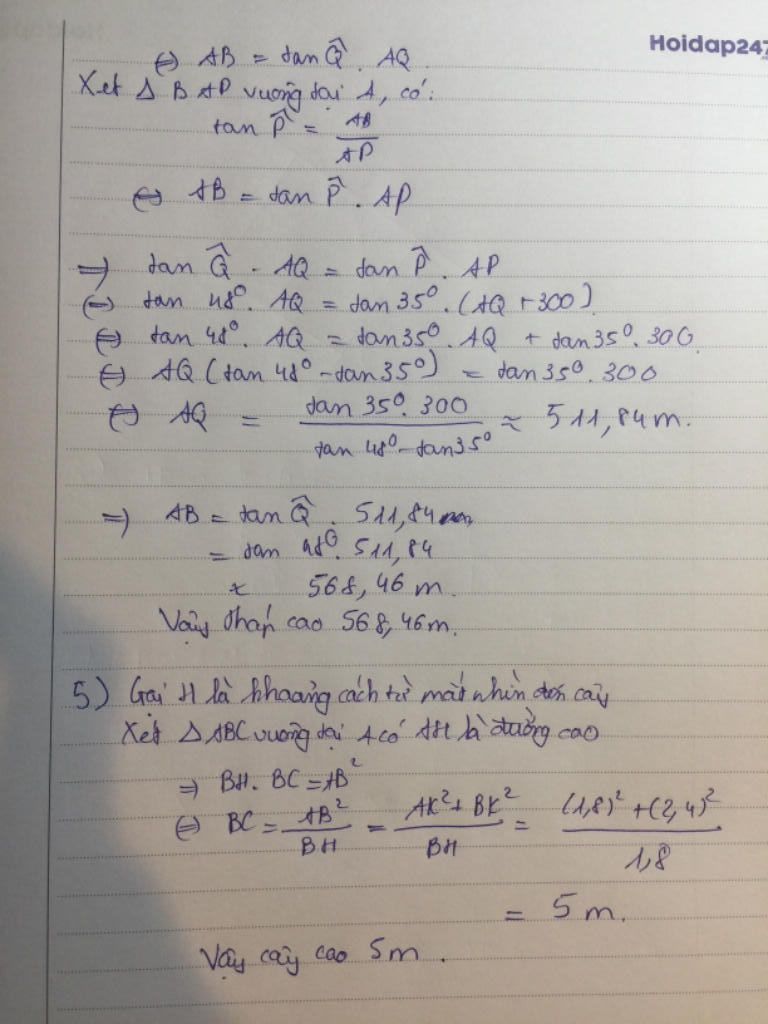 Hoidap247
⇔ AB = tan Q̂ . AQ.
Xét Δ BAP vuông tại A, có:
tan P̂ = AB / AP
⇔ AB = tan P̂ . AP
⇒ tan Q̂ . AQ = tan P̂ . AP
⇔ tan 48° . AQ = tan 35° . (AQ + 300)
⇔ tan 48° . AQ = tan 35° . AQ + tan 35° . 300
⇔ AQ (tan 48° - tan 35°) = tan 35° . 300
⇔ AQ = tan 35° . 300 / tan 48° - tan 35° ≈ 511,84 m.
⇒ AB = tan Q̂ . 511,84
= tan 48° . 511,84
≈ 568,46 m.
Vậy tháp cao 568,46 m.
5) Gọi H là khoảng cách từ mắt nhìn đến cây
Xét Δ ABC vuông tại A có AH là đường cao
⇒ BH . BC = AB²
⇔ BC = AB² / BH = AK² + BK² / BH = (1,8)² + (2,4)² / 1,8
= 5 m.
Vậy cây cao 5m.